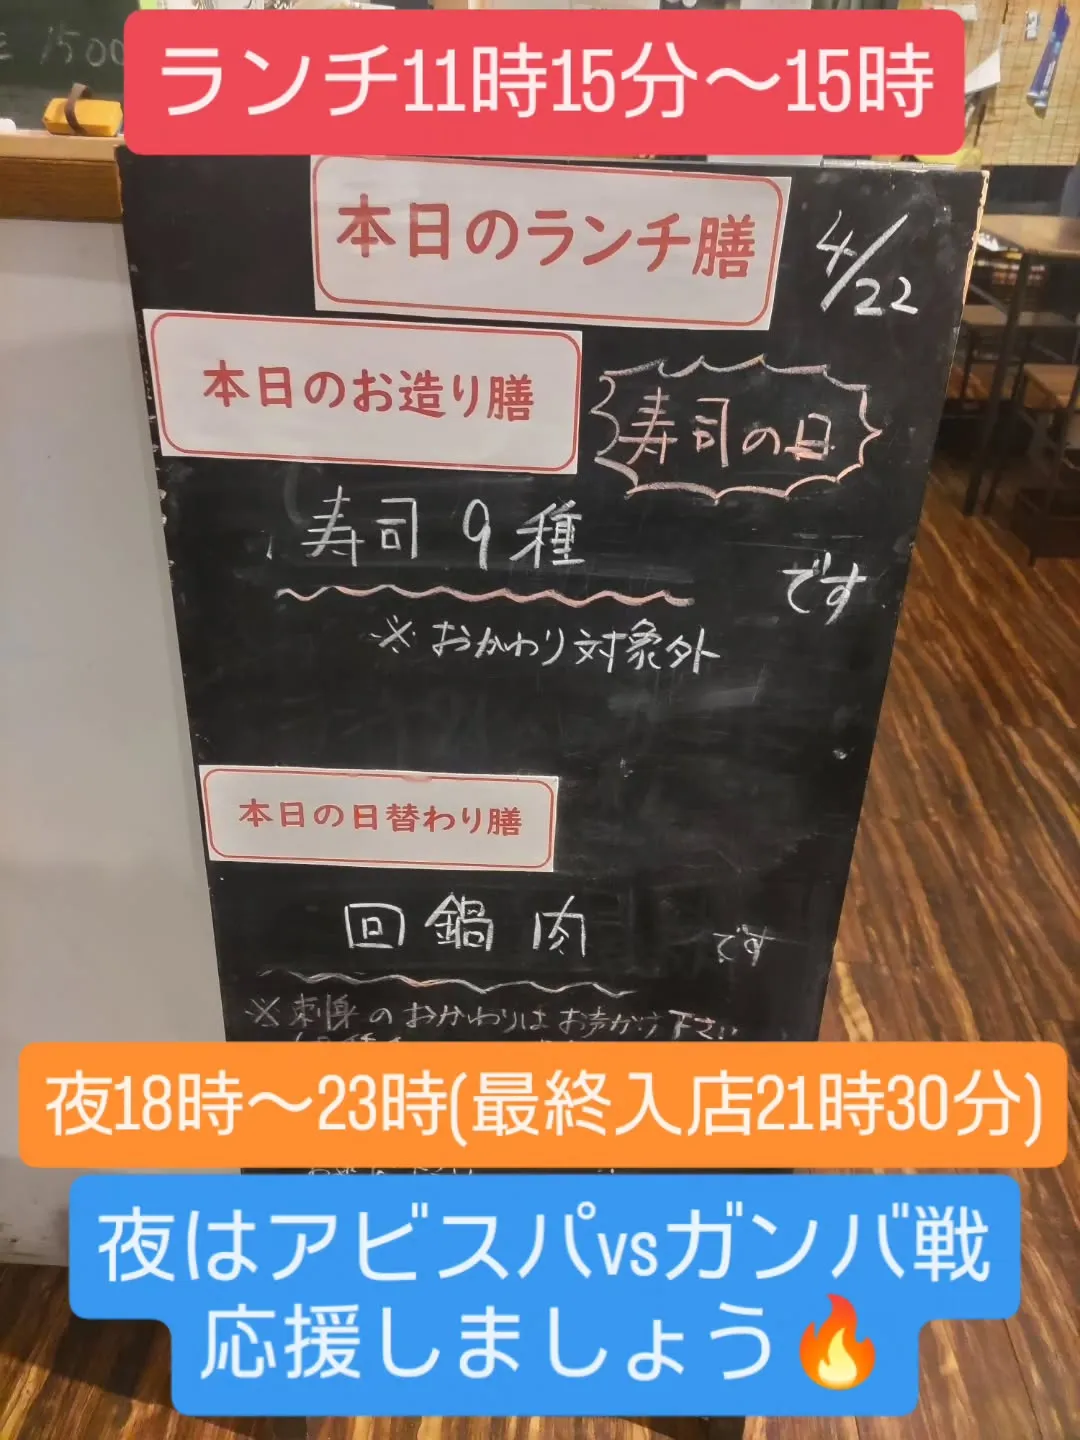 1500
ランチ11時15分〜15時
本日のランチ膳
4/22
本日のお造り膳
寿司の日
寿司9種
です
※おかわり対象外
本日の日替わり膳
回鍋肉
です
※刺身のおかわりはお声がけ下さい
夜18時〜23時(最終入店21時30分)
夜はアビスパvsガンバ戦
応援しましょう🔥